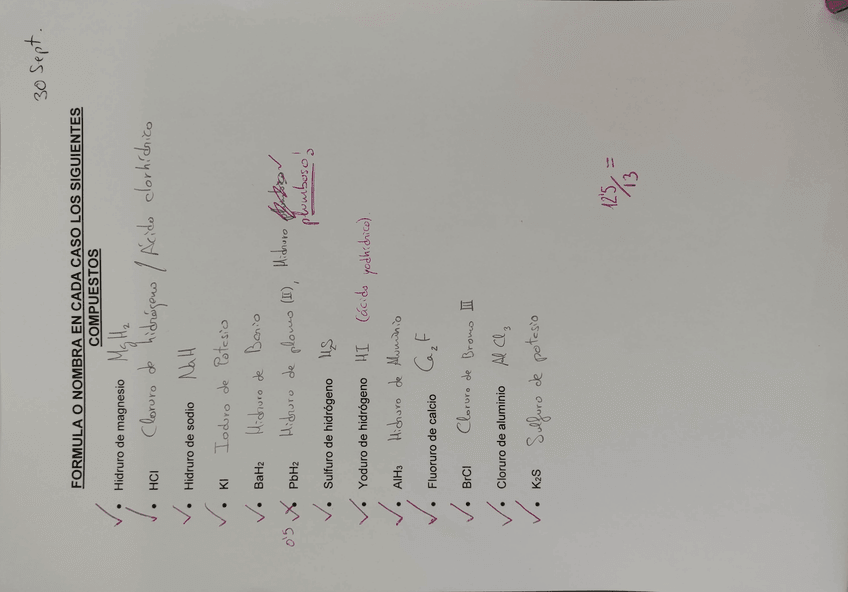 30 Sept.
FORMULA O NOMBRA EN CADA CASO LOS SIGUIENTES
COMPUESTOS
• Hidruro de magnesio MgH2
• HCl Cloruro de hidrógeno / Ácido clorhídrico
• Hidruro de sodio NaH
• KI Ioduro de Potasio
• BaH2 Hidruro de Bario
0'5 • PbH2 Hidruro de plomo (II), Hidruro
plumboso!
• Sulfuro de hidrógeno H2S
• Yoduro de hidrógeno HI (ácido yodhídrico)
• AlH3 Hidruro de Aluminio
• Fluoruro de calcio Ca2F
• BrCl Cloruro de Bromo III
• Cloruro de aluminio AlCl3
• K2S Sulfuro de potasio
12'5/13 =